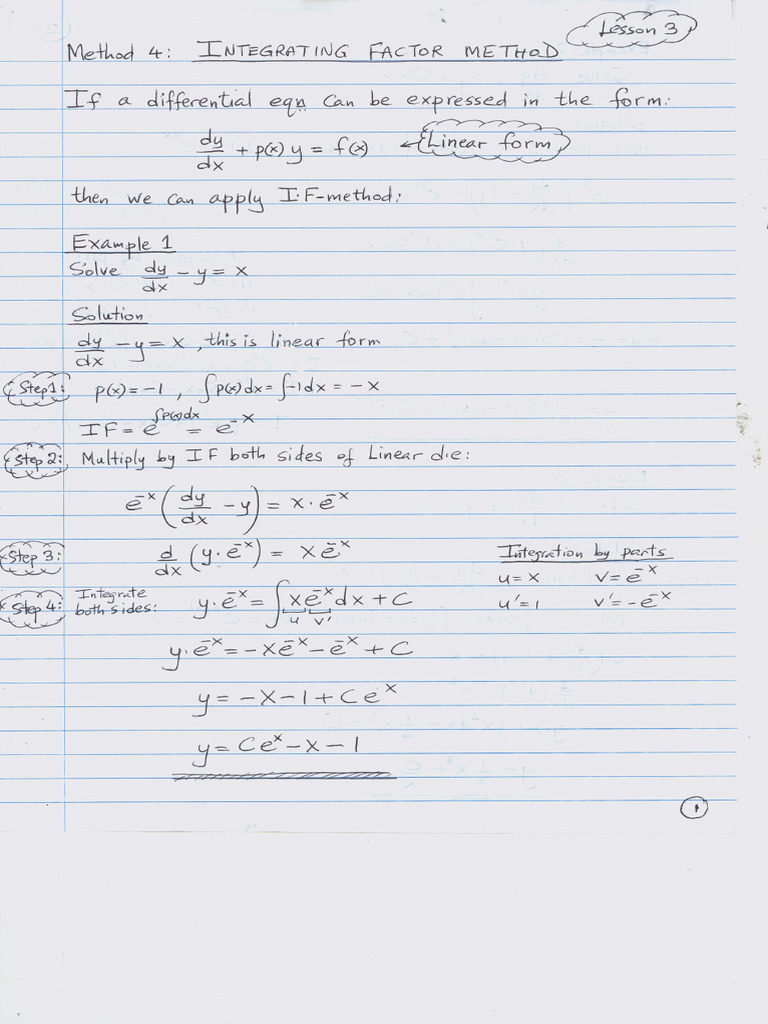 Lesson 3
Method 4: INTEGRATING FACTOR METHOD
If a differential eqn can be expressed in the form:
dy/dx + p(x) y = f(x) ← Linear form
then we can apply I.F-method:
Example 1
Solve dy/dx − y = x
Solution
dy/dx − y = x, this is linear form
Step 1: p(x) = −1, ∫p(x)dx = ∫−1dx = −x
IF = e^∫p(x)dx = e^−x
Step 2: Multiply by IF both sides of Linear d.e:
e^−x (dy/dx − y) = x · e^−x
Step 3: d/dx (y · e^−x) = x e^−x
Step 4: Integrate both sides: y · e^−x = ∫ x e^−x dx + C
u v'
Integration by parts
u = x v = e^−x
u' = 1 v' = −e^−x
y · e^−x = −x e^−x − e^−x + C
y = −x − 1 + C e^x
y = C e^x − x − 1
1